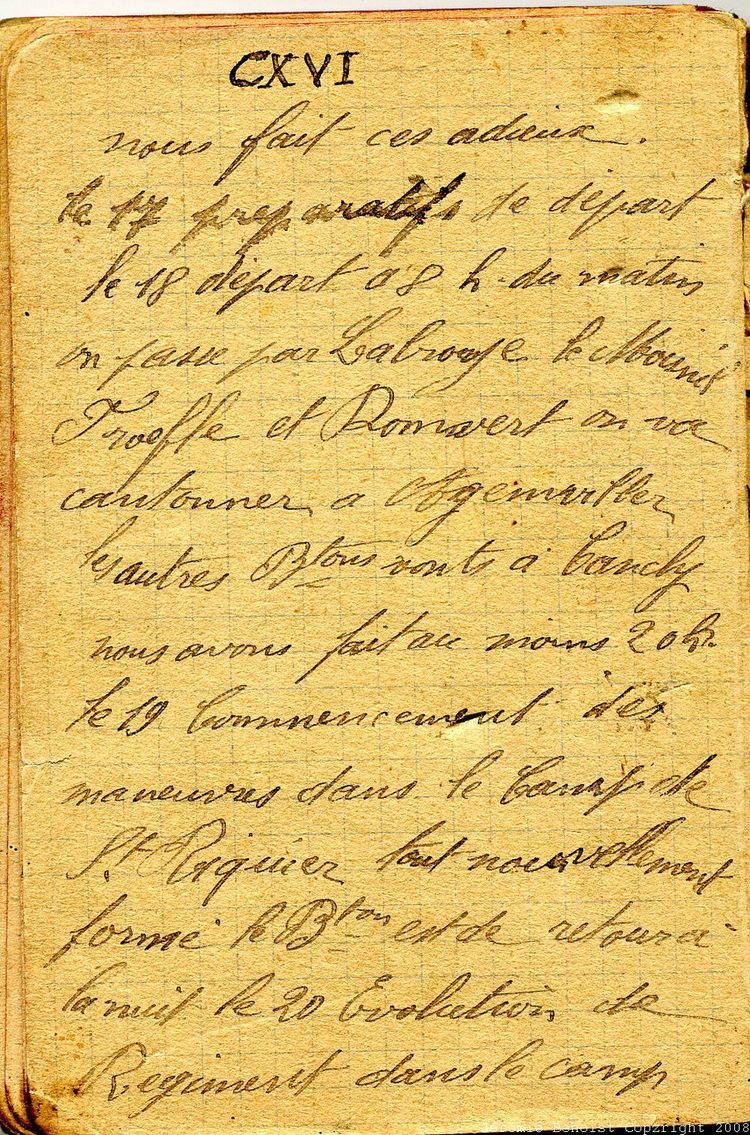 CXVI
nous fait ces adieux.
le 17 preparatifs de départ
le 18 départ a 8 h. du matin
on passe par Labroye le
et on va
cantonner a Agenviller
les autres Btons vonts a Canchy
nous avons fait au moins 20
le 19 Commencement des
maneuvres dans le Camp de
St Riquier tout nouvellement
formé le Bton est de retour a
la nuit le 20 Evolution de
Regiment dans le camp
Copyright 2008